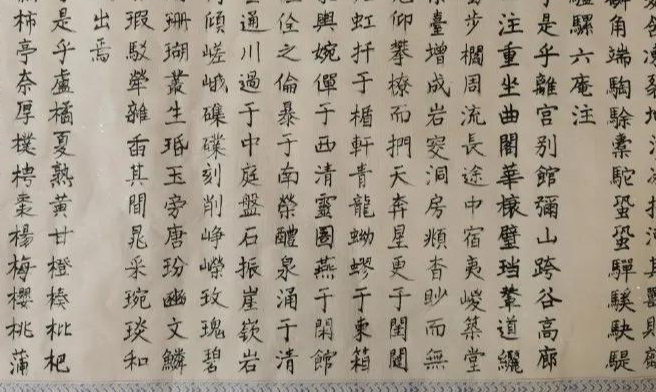 凍裂地涉冰揭河其獸則
角端騊駼橐駝蛩蛩驒騱駃騠
騾六庵注
于是乎離宮别館彌山跨谷高廊
注重坐曲閣華榱璧珰輦道纚
步櫩周流長途中宿夷嵕築堂
臺增成岩窔洞房頫杳眇而無
仰攀橑而捫天奔星更于閨闥
虹扦于楯軒青龍蚴蟉于東箱
輿婉僤于西清靈圄燕于閑館
佺之倫暴于南榮醴泉涌于清
通川過于中庭盤石振崖嶔岩
傾嵯峨磼礏刻削崢嶸玫瑰碧
珊瑚叢生珉玉旁唐玢豳文鱗
瑕駁犖雜臿其間晁采琬琰和
出焉
是乎盧橘夏熟黃甘橙楱枇杷
柿亭奈厚樸梬棗楊梅櫻桃蒲